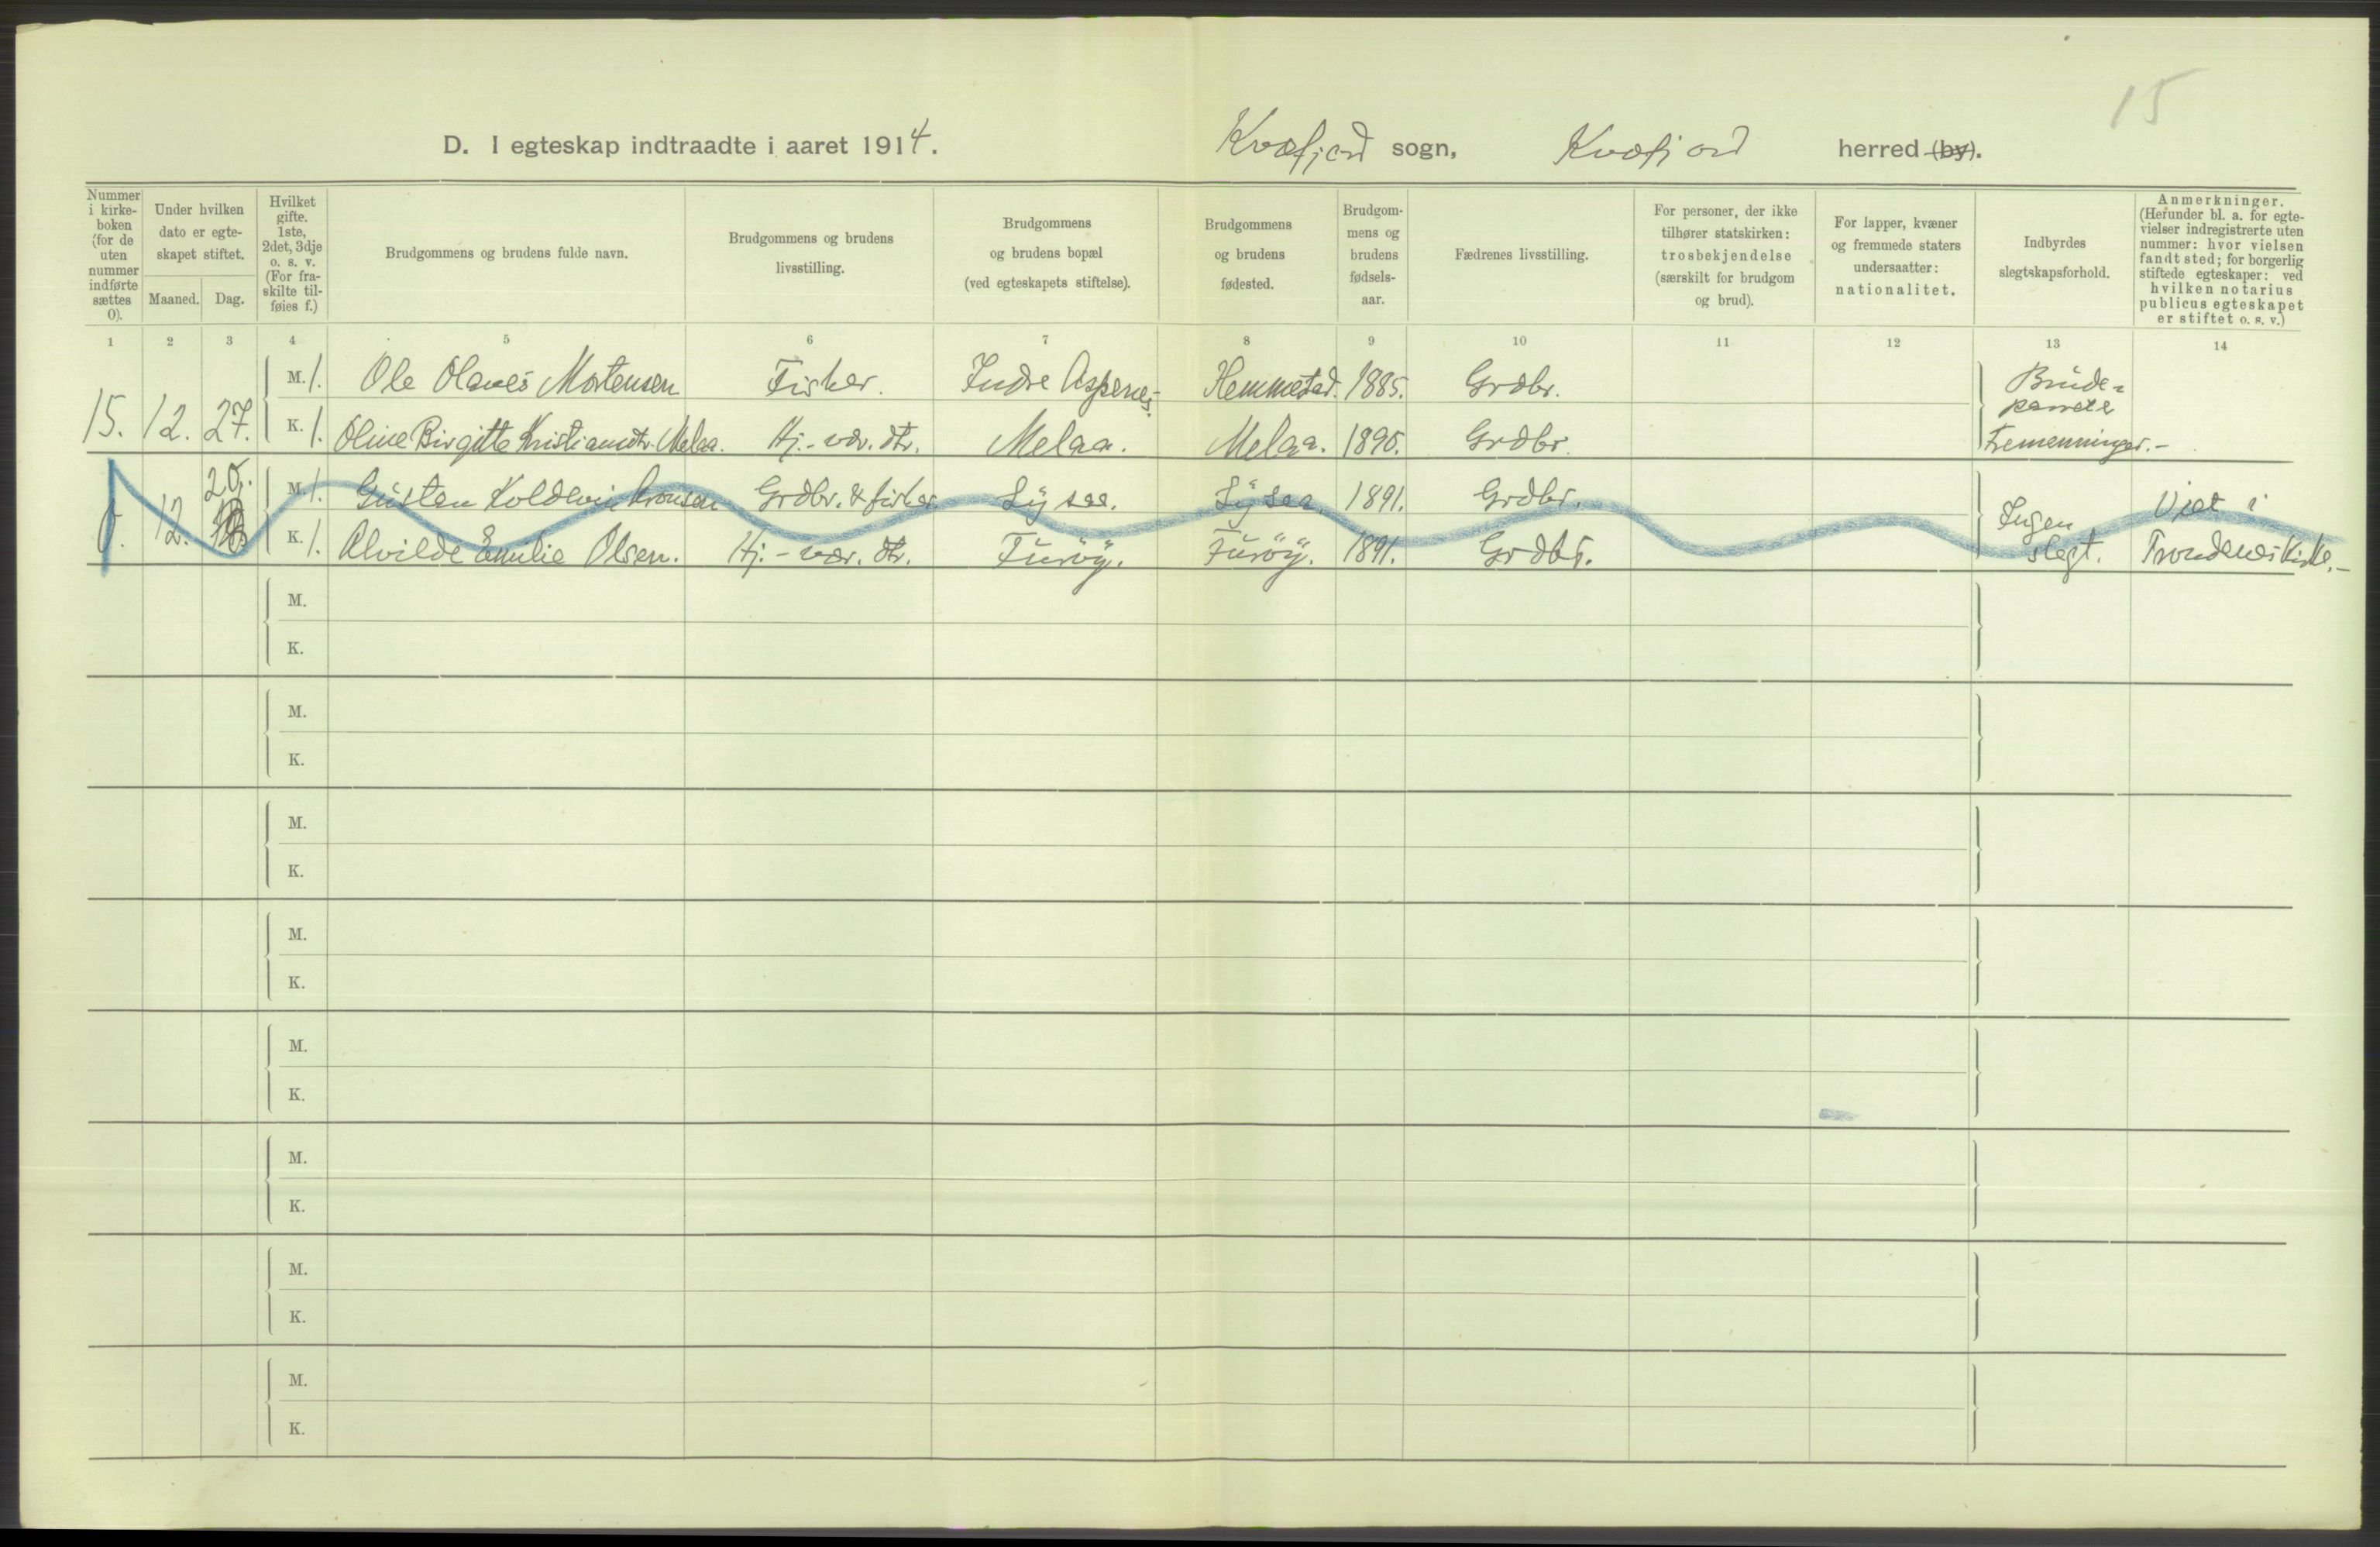 15
D. I egteskap indtraadte i aaret 1914.
Kvæfjord sogn, Kvæfjord herred (by).
Nummer i kirkeboken (for de uten nummer indførte sættes 0).
Under hvilken dato er egteskapet stiftet.
Maaned. Dag.
Hvilket gifte. 1ste, 2det, 3dje o. s. v. (For fraskilte tilføies f.)
Brudgommens og brudens fulde navn.
Brudgommens og brudens livsstilling.
Brudgommens og brudens bopæl (ved egteskapets stiftelse).
Brudgommens og brudens fødested.
Brudgommens og brudens fødselsaar.
Fædrenes livsstilling.
For personer, der ikke tilhører statskirken: trosbekjendelse (særskilt for brudgom og brud).
For lapper, kvæner og fremmede staters undersaatter: nationalitet.
Indbyrdes slegtskapsforhold.
Anmerkninger. (Herunder bl. a. for egtevielser indregistrerte uten nummer: hvor vielsen fandt sted; for borgerlig stiftede egteskaper: ved hvilken notarius publicus egteskapet er stiftet o. s. v.)
1 2 3 4 5 6 7 8 9 10 11 12 13 14
15. 12. 27.
M. 1. Ole Olaves Mortensen Fisker. Indre Aspenes. Hemmestad. 1885. Grdbr.
K. 1. Oline Birgitte Kristiansdtr. Melaa. Hj.-vær. dtr. Melaa. Melaa. 1890. Grdbr.
Brude-
parrete
tremenninger.-
0. 12. 20.
M. 1. Gusten Koldevin Grdbr. & fisker. Lysaa. Lysaa. 1891. Grdbr.
K. 1. Alvilde Emilie Olsen. Hj.-vær. dtr. Furöy. Furöy. 1891. Grdbr.
Ingen
slegt.
Viet i
Trondenes Kirke.-
M.
K.
M.
K.
M.
K.
M.
K.
M.
K.
M.
K.
M.
K.
M.
K.